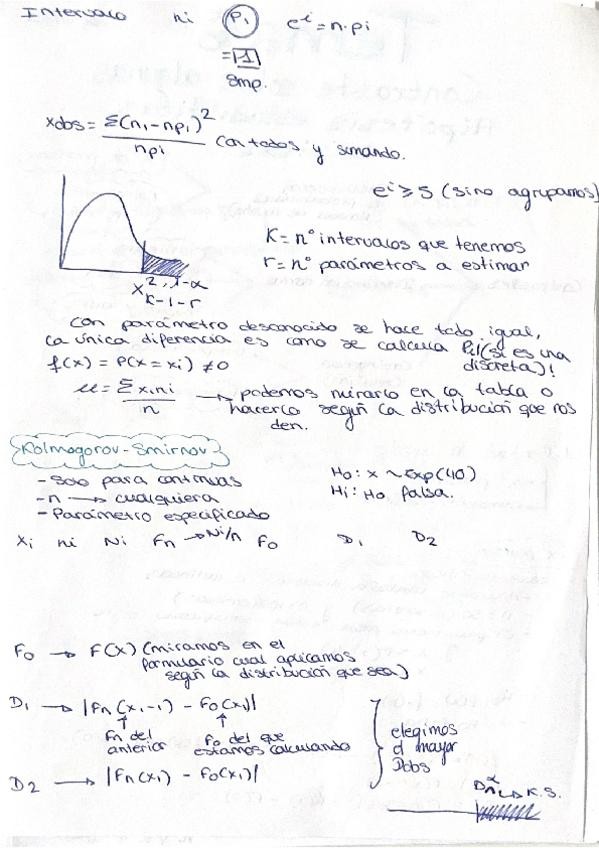 Intervalo ni Pi eⁱ = n·pi
= 1
Smp.
xobs = Σ(n₁ - np₁)² / npi con todos y sumando.
eⁱ ≥ 5 (sino agrupamos)
K = nº intervalos que tenemos
r = nº parámetros a estimar
X², 1-α
K-1-r
Con parámetro desconocido se hace todo igual,
la única diferencia es como se calcula Pi! (si es una
discreta)!
f(x) = P(X = xi) ≠ 0
μ = Σxini / n → podemos mirarlo en la tabla o
hacerlo según la distribución que nos
den.
Kolmogorov - Smirnov
- Solo para continuas
- n → cualquiera
- Parámetro especificado
Ho: x ~ Exp(40)
Hi: Ho falsa.
Xi ni Ni Fn → Ni/n Fo D₁ D₂
Fo → F(x) (miramos en el
formulario cual aplicamos
según la distribución que sea)
D₁ → |Fn(x₁-1) - Fo(x₁)|
↑ ↑
Fn del
anterior
Fo del que
estamos calculando
D₂ → |Fn(x₁) - Fo(x₁)|
elegimos
el mayor
Dobs
Dnα → K.S.